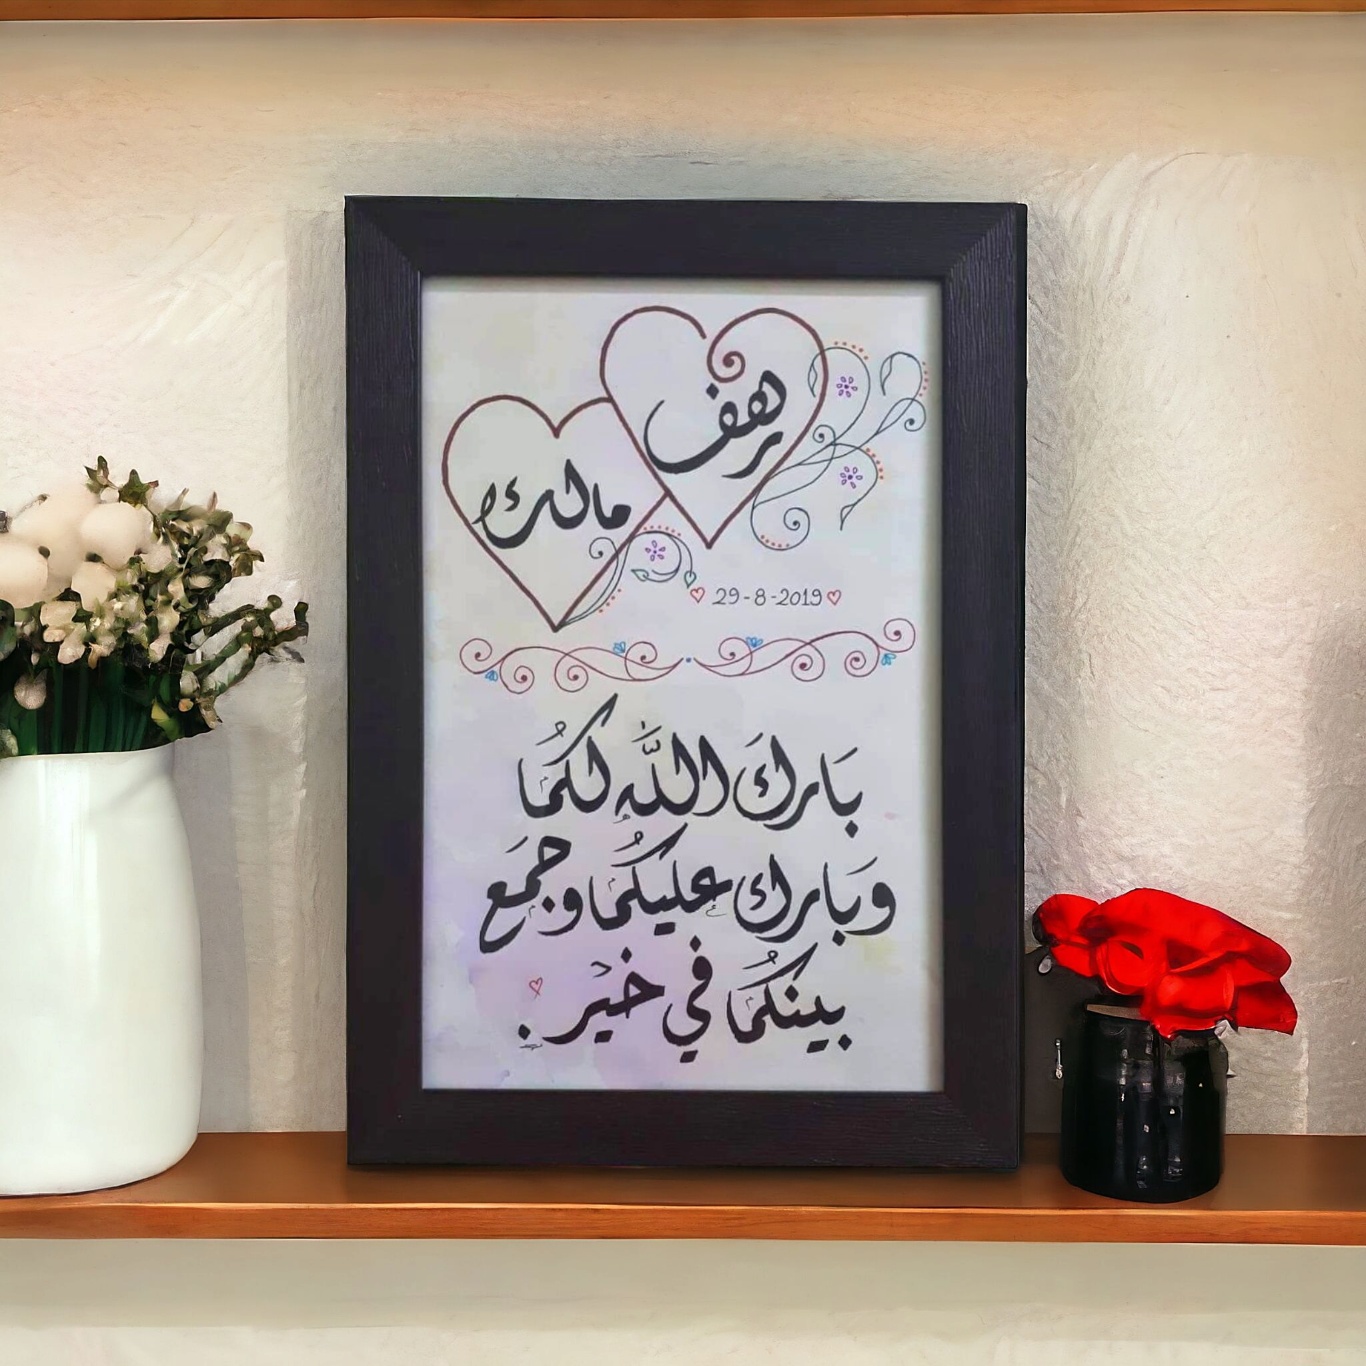 رهف
مالك
29-8-2019
بَارَكَ اللَّه لكُما
وبَارك عليكُما وجَمَع
بينكُما في خَير.